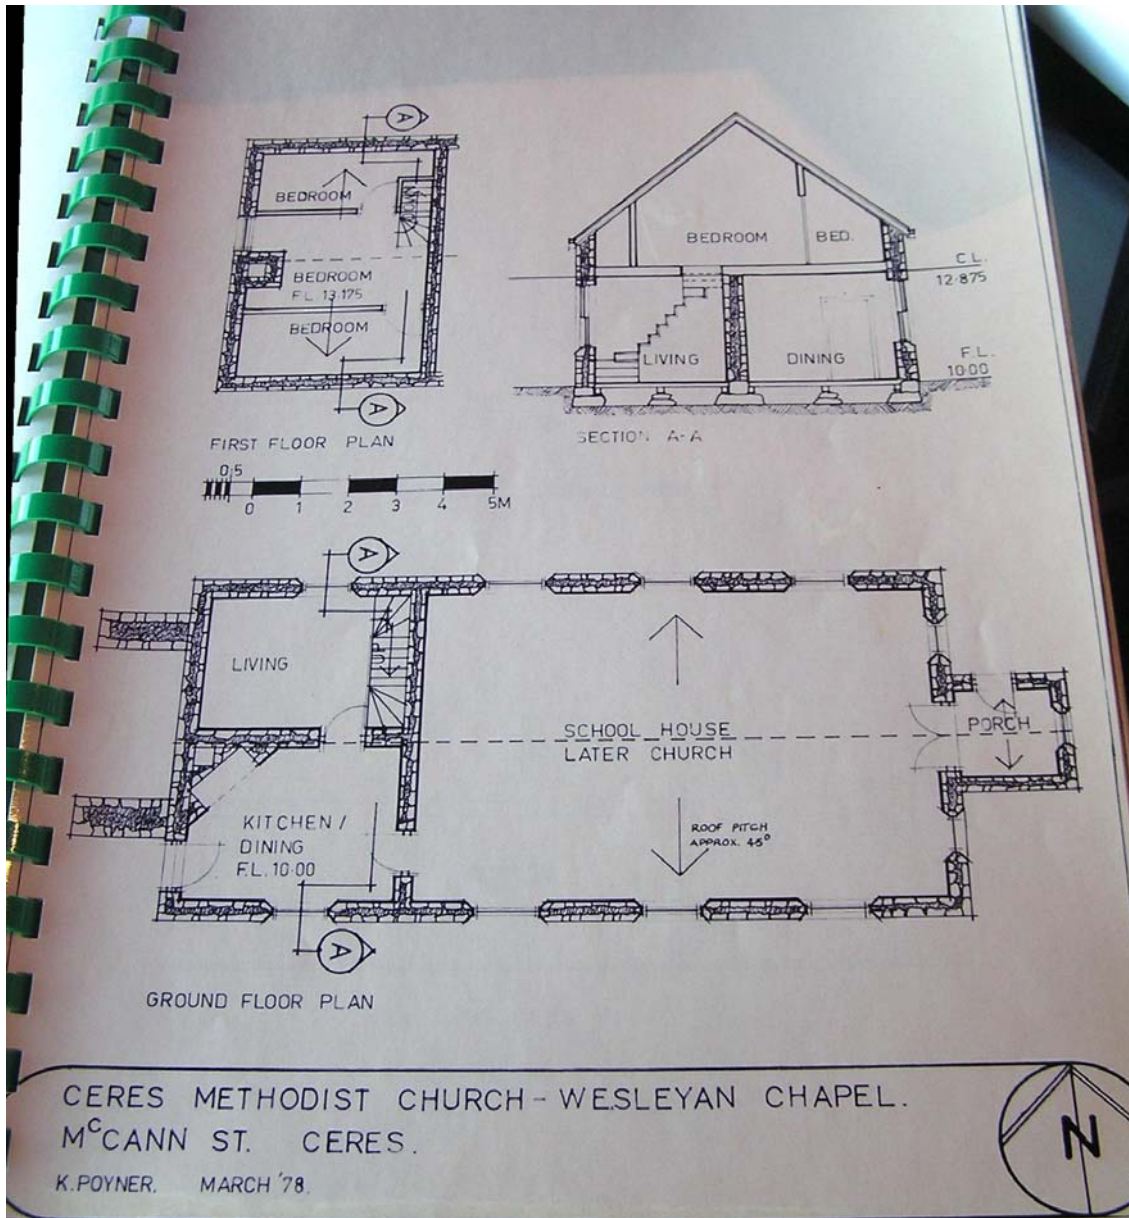 A
BEDROOM
BEDROOM
F.L. 13.175
BEDROOM
A
FIRST FLOOR PLAN
BEDROOM
BED.
C.L.
12.875
LIVING
DINING
F.L.
10.00
SECTION A-A
0.5
0 1 2 3 4 5M
A
LIVING
UP
SCHOOL HOUSE
LATER CHURCH
PORCH
KITCHEN /
DINING
F.L. 10.00
ROOF PITCH
APPROX. 45°
A
GROUND FLOOR PLAN
CERES METHODIST CHURCH - WESLEYAN CHAPEL.
McCANN ST. CERES.
K. POYNER. MARCH '78.
N